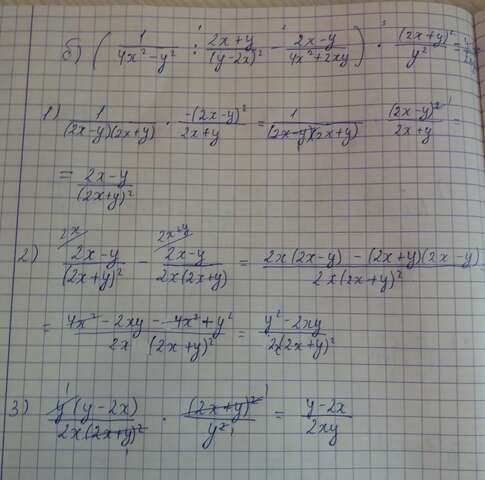 б) ( 1/(4x²−y²) : (2x+y)/(y−2x)² − (2x−y)/(4x²+2xy) ) · (2x+y)²/y² =
1) 1/((2x−y)(2x+y)) · −(2x−y)²/(2x+y) = 1/((2x−y)(2x+y)) · (2x−y)²/(2x+y) =
= (2x−y)/(2x+y)²
2) (2x−y)/(2x+y)² − (2x−y)/(2x(2x+y)) = (2x(2x−y) − (2x+y)(2x−y))/(2x(2x+y)²) =
= (4x² − 2xy − 4x² + y²)/(2x (2x+y)²) = (y²−2xy)/(2x(2x+y)²)
3) y(y−2x)/(2x(2x+y)²) · (2x+y)²/y² = (y−2x)/(2xy)